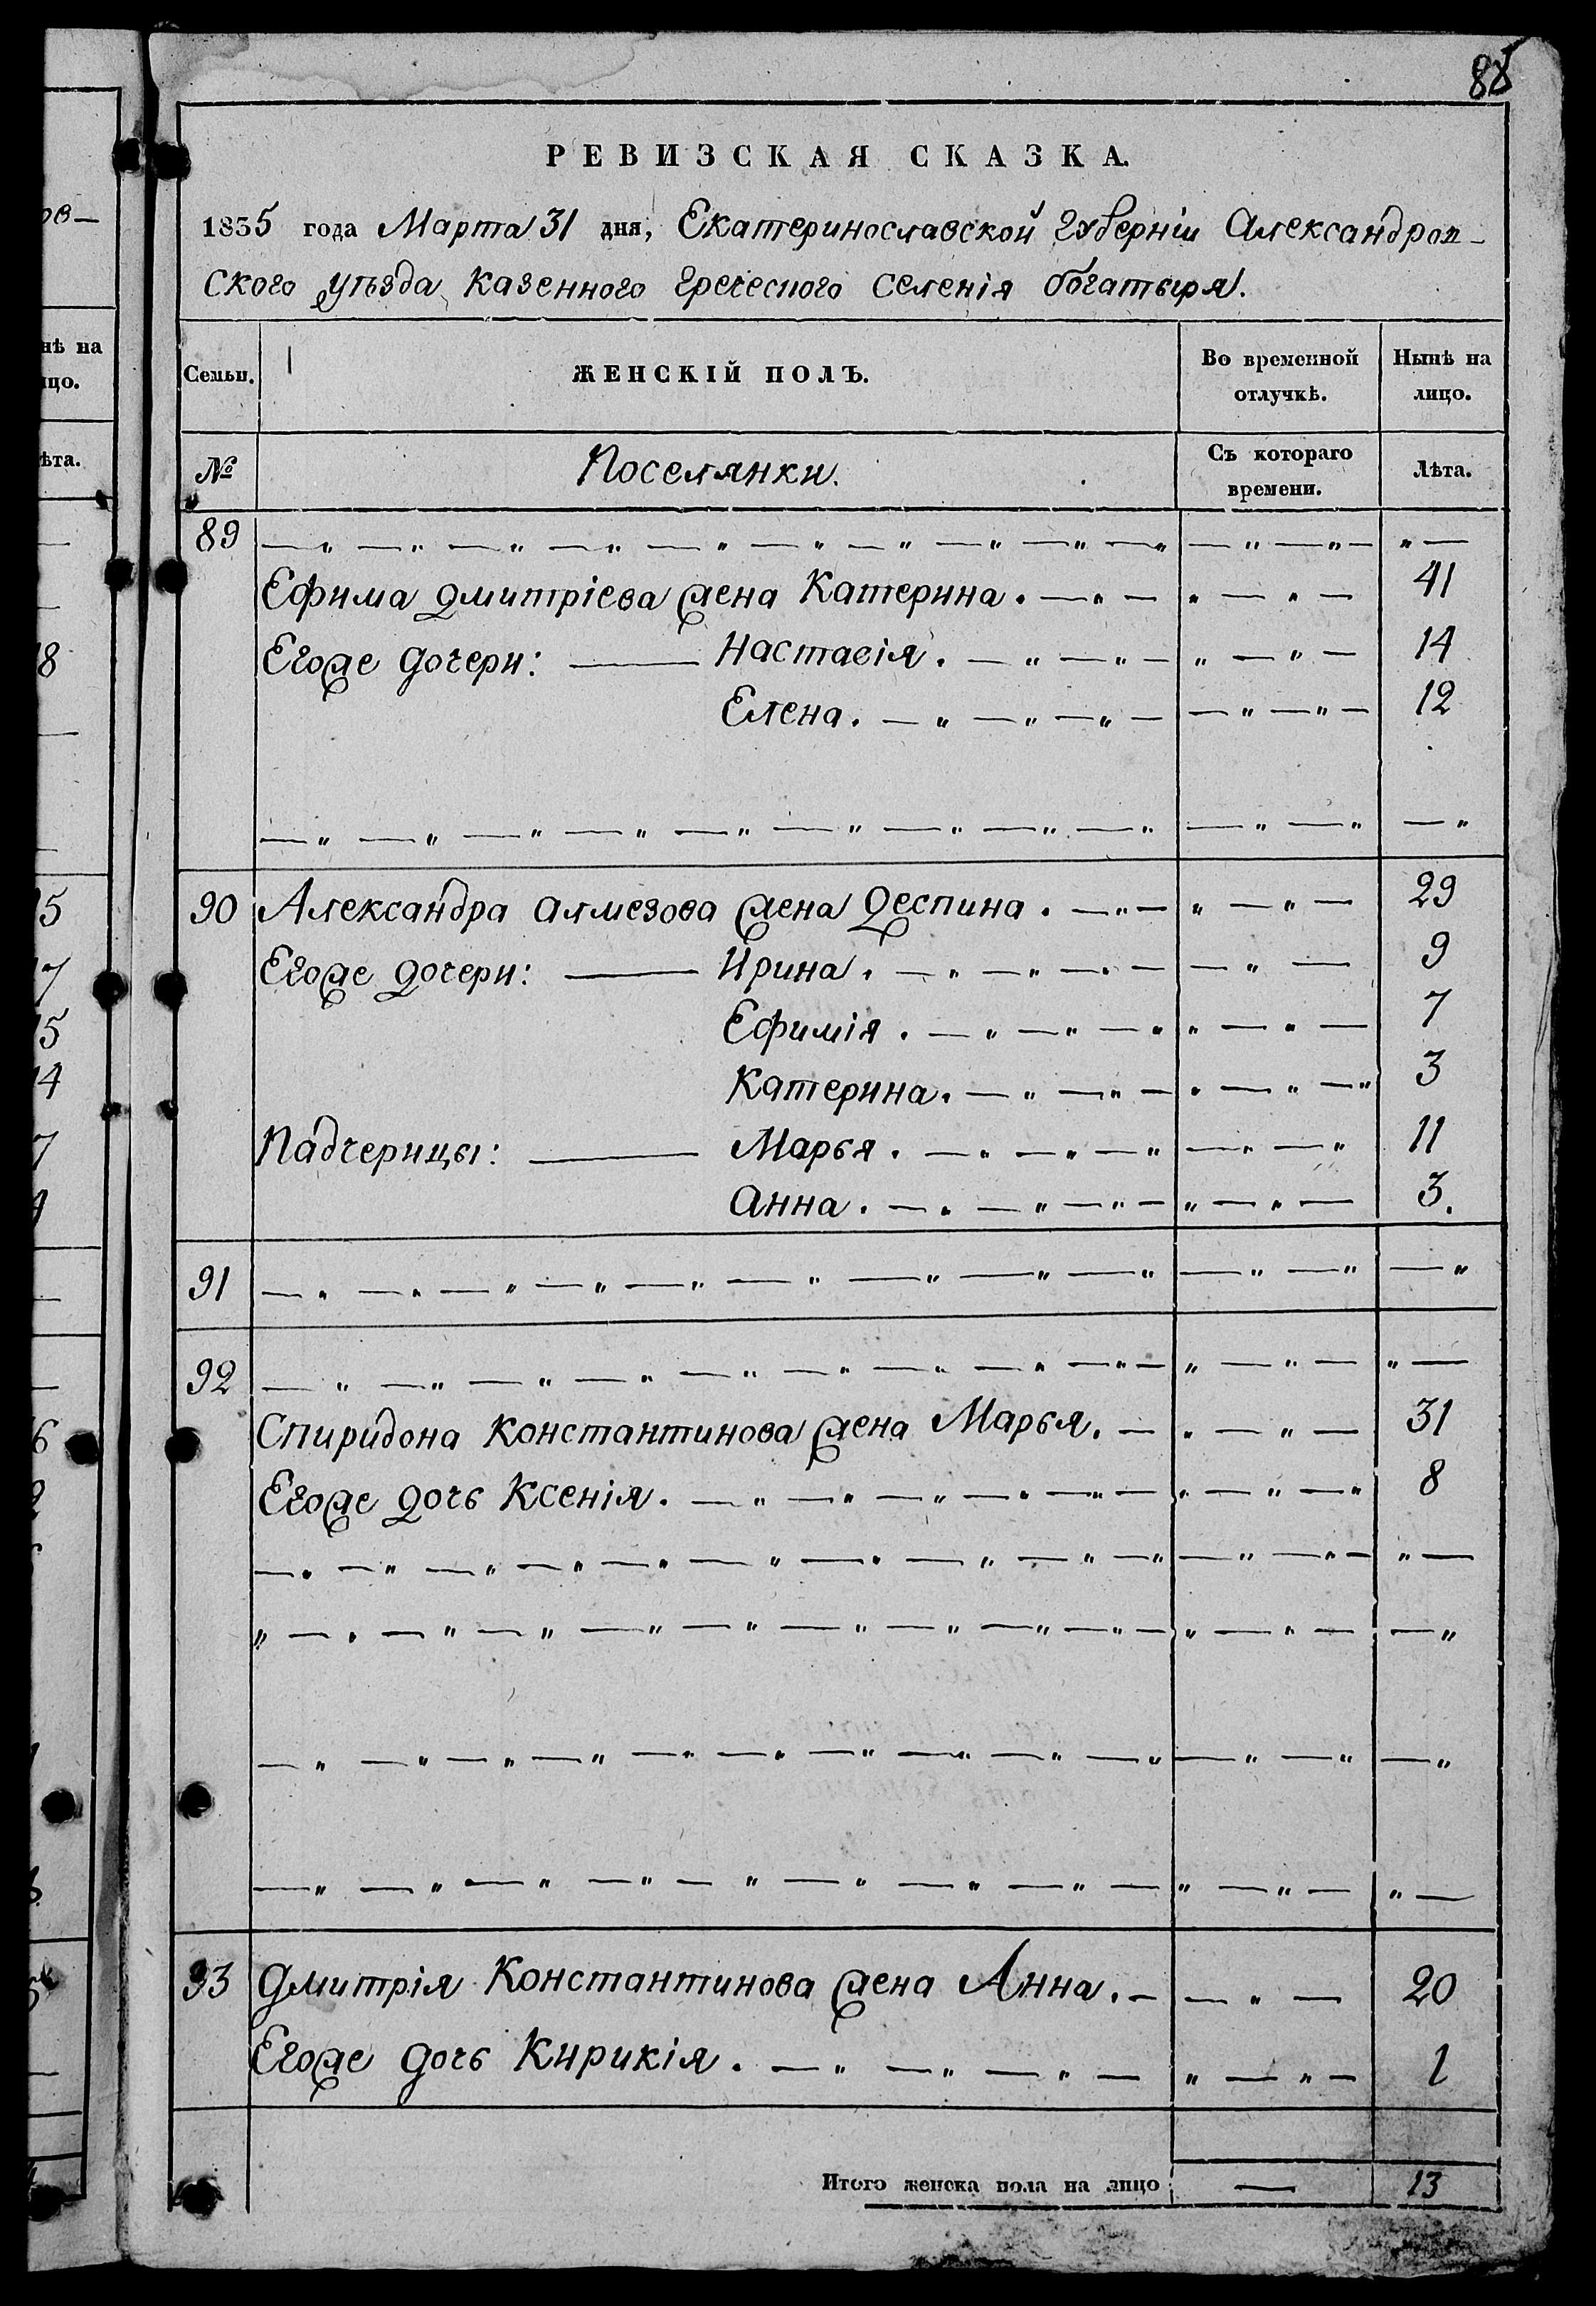 88
РЕВИЗСКАЯ СКАЗКА.
1835 года Марта 31 дня, Екатеринославской Губерніи Александров-
ского уѣзда казенного греческого селенія богатыря.
Семьи. ЖЕНСКІЙ ПОЛЪ. Во временной отлучкѣ. Нынѣ на лицо.
№ Поселянки. Съ котораго времени. Лѣта.
89 — „ — „ — „ — „ — „ — „ — „ — „ — „ — „ — „ — „ — „ —
Ефима Дмитріева жена Катерина. — „ — „ — „ — 41
Егоже дочери: — Настасія. — „ — „ — „ — „ — 14
Елена. — „ — „ — „ — — „ — „ — 12
— „ — „ — „ — „ — „ — „ — „ — „ — „ — „ — „ — „
90 Александра Алмезова жена Деспина. — „ — „ — „ — 29
Егоже дочери: — Ирина. — „ — „ — „ — — „ — 9
Ефимія. — „ — „ — „ „ — „ — 7
Катерина. — „ — „ — „ — „ — „ 3
Падчерицы: — Марья. — „ — „ — „ — „ — „ 11
Анна. — „ — „ — „ — „ — „ — 3.
91 — „ — „ — „ — „ — „ — „ — „ — „ — „ — „ — „ — „
92 — „ — „ — „ — „ — „ — „ — „ — „ — „ — „ — „ — „ —
Спиридона Константинова жена Марья. — „ — „ — 31
Егоже дочь Ксенія. — „ — „ — „ — „ — „ — „ — „ — „ 8
— „ — „ — „ — „ — „ — „ — „ — „ — „ — „ — „ — „ — „ —
„ — „ — „ — „ — „ — „ — „ — „ — „ — „ — „ — „ — — „
— „ — „ — „ — „ — „ — „ — „ — „ — „ — „ — „ — „ — „
— „ — „ — „ — „ — „ — „ — „ — „ — „ — „ — „ —
93 Дмитрія Константинова жена Анна. — — „ — 20
Егоже дочь Кирикія. — „ — „ — „ — „ — „ — 1
Итого женска пола на лицо — 13